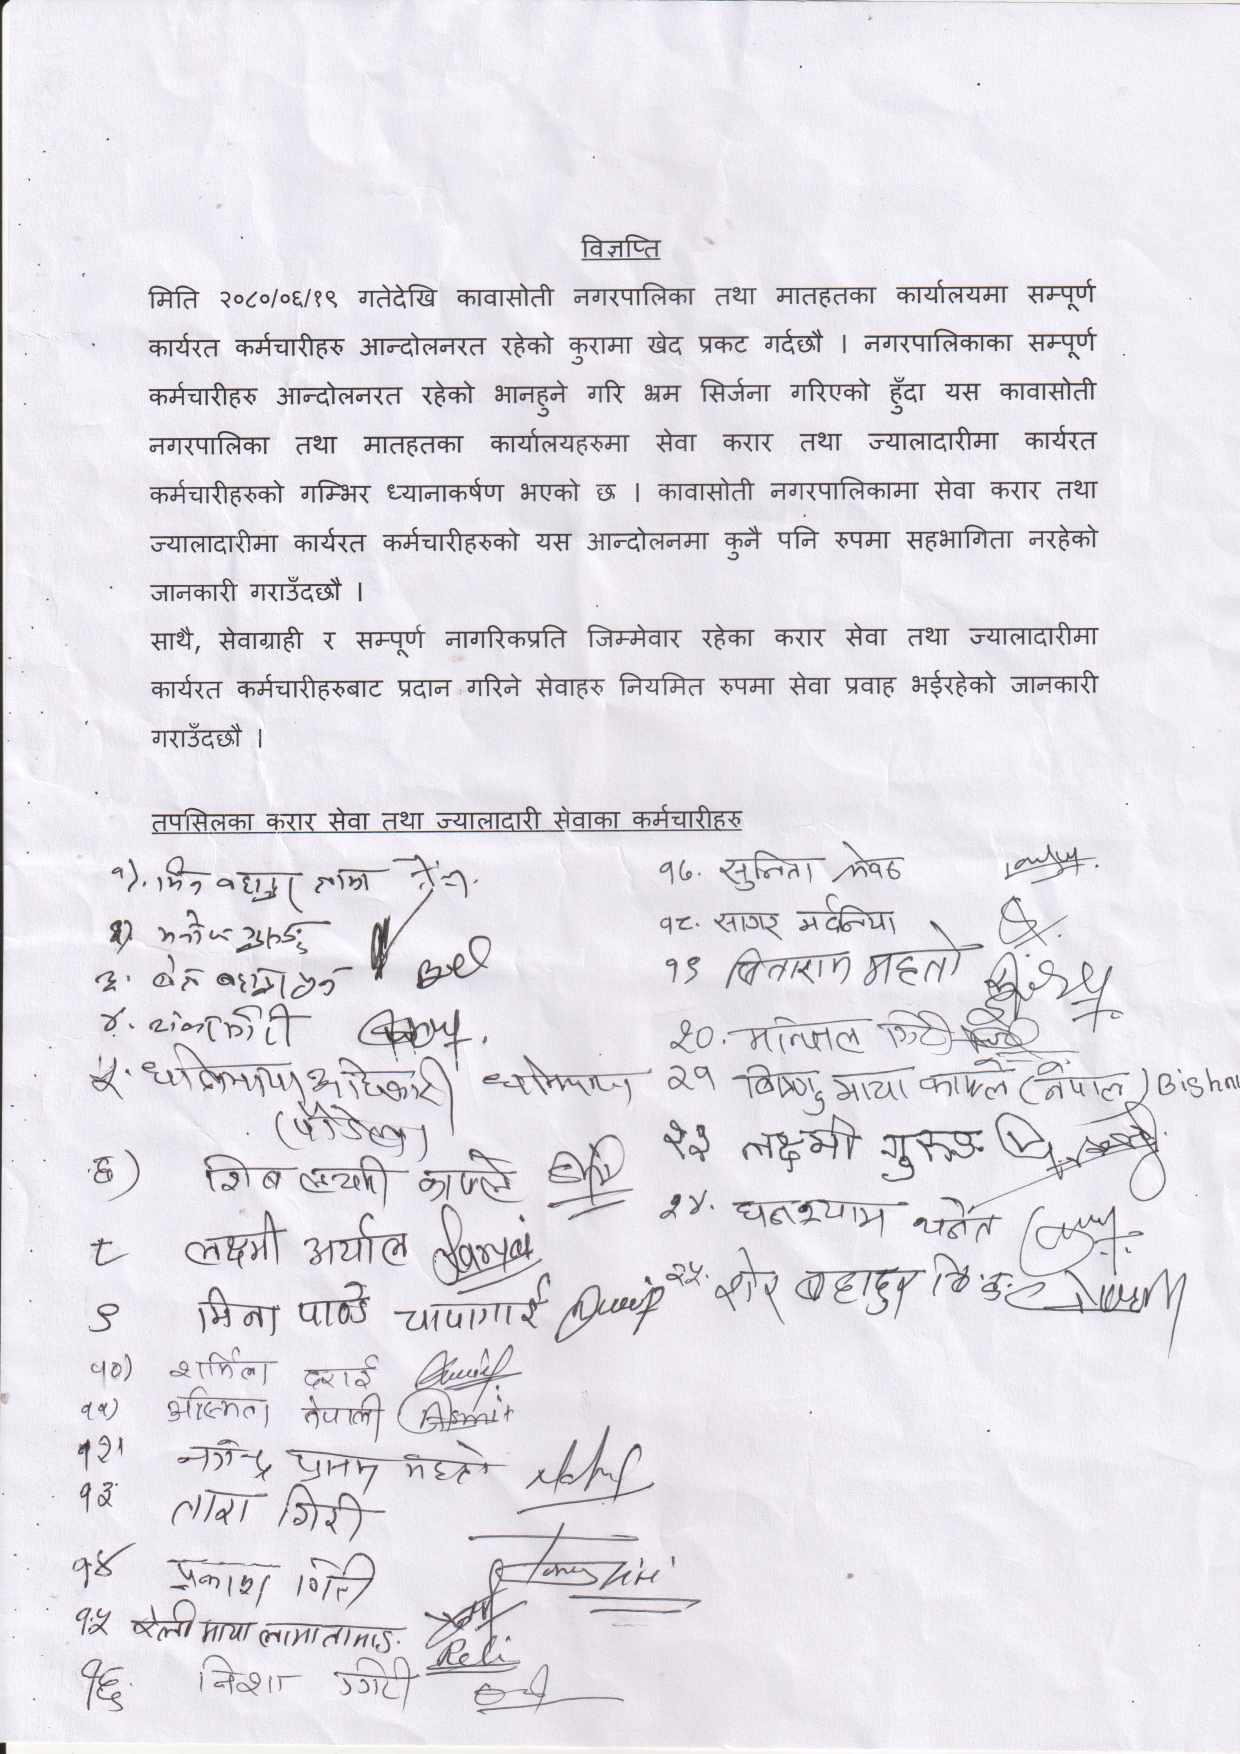 विज्ञप्ति
मिति २०८०/०६/१९ गतेदेखि कावासोती नगरपालिका तथा मातहतका कार्यालयमा सम्पूर्ण
कार्यरत कर्मचारीहरु आन्दोलनरत रहेको कुरामा खेद प्रकट गर्दछौ । नगरपालिकाका सम्पूर्ण
कर्मचारीहरु आन्दोलनरत रहेको भानहुने गरि भ्रम सिर्जना गरिएको हुँदा यस कावासोती
नगरपालिका तथा मातहतका कार्यालयहरुमा सेवा करार तथा ज्यालादारीमा कार्यरत
कर्मचारीहरुको गम्भिर ध्यानाकर्षण भएको छ । कावासोती नगरपालिकामा सेवा करार तथा
ज्यालादारीमा कार्यरत कर्मचारीहरुको यस आन्दोलनमा कुनै पनि रुपमा सहभागिता नरहेको
जानकारी गराउँदछौ ।
साथै, सेवाग्राही र सम्पूर्ण नागरिकप्रति जिम्मेवार रहेका करार सेवा तथा ज्यालादारीमा
कार्यरत कर्मचारीहरुबाट प्रदान गरिने सेवाहरु नियमित रुपमा सेवा प्रवाह भईरहेको जानकारी
गराउँदछौ ।
तपसिलका करार सेवा तथा ज्यालादारी सेवाका कर्मचारीहरु
१). बहादुर लामा
२). मनोज गुरुङ
३. बहादुर
४.
५. अधिकारी
(पौडेल)
६) शिव लक्ष्मी काफ्ले
८ लक्ष्मी अर्याल
९ मिना पाण्डे चापागाई
१०) शर्मिला दराई
११) अस्मिता नेपाली
१२) महतो
१३ तारा गिरी
१४ प्रकाश गिरी
१५ रेली माया लामा तामाङ Reli
१६. निशा गिरी
१७. सुनिता श्रेष्ठ
१८. सागर मर्दनिया
१९ सिताराम महतो
२०. गिरी
२१ विष्णु माया काफ्ले (नेपाल) Bishnu
२३ लक्ष्मी गुरुङ
२४. घनश्याम
२५. शेर बहादुर वि.क.